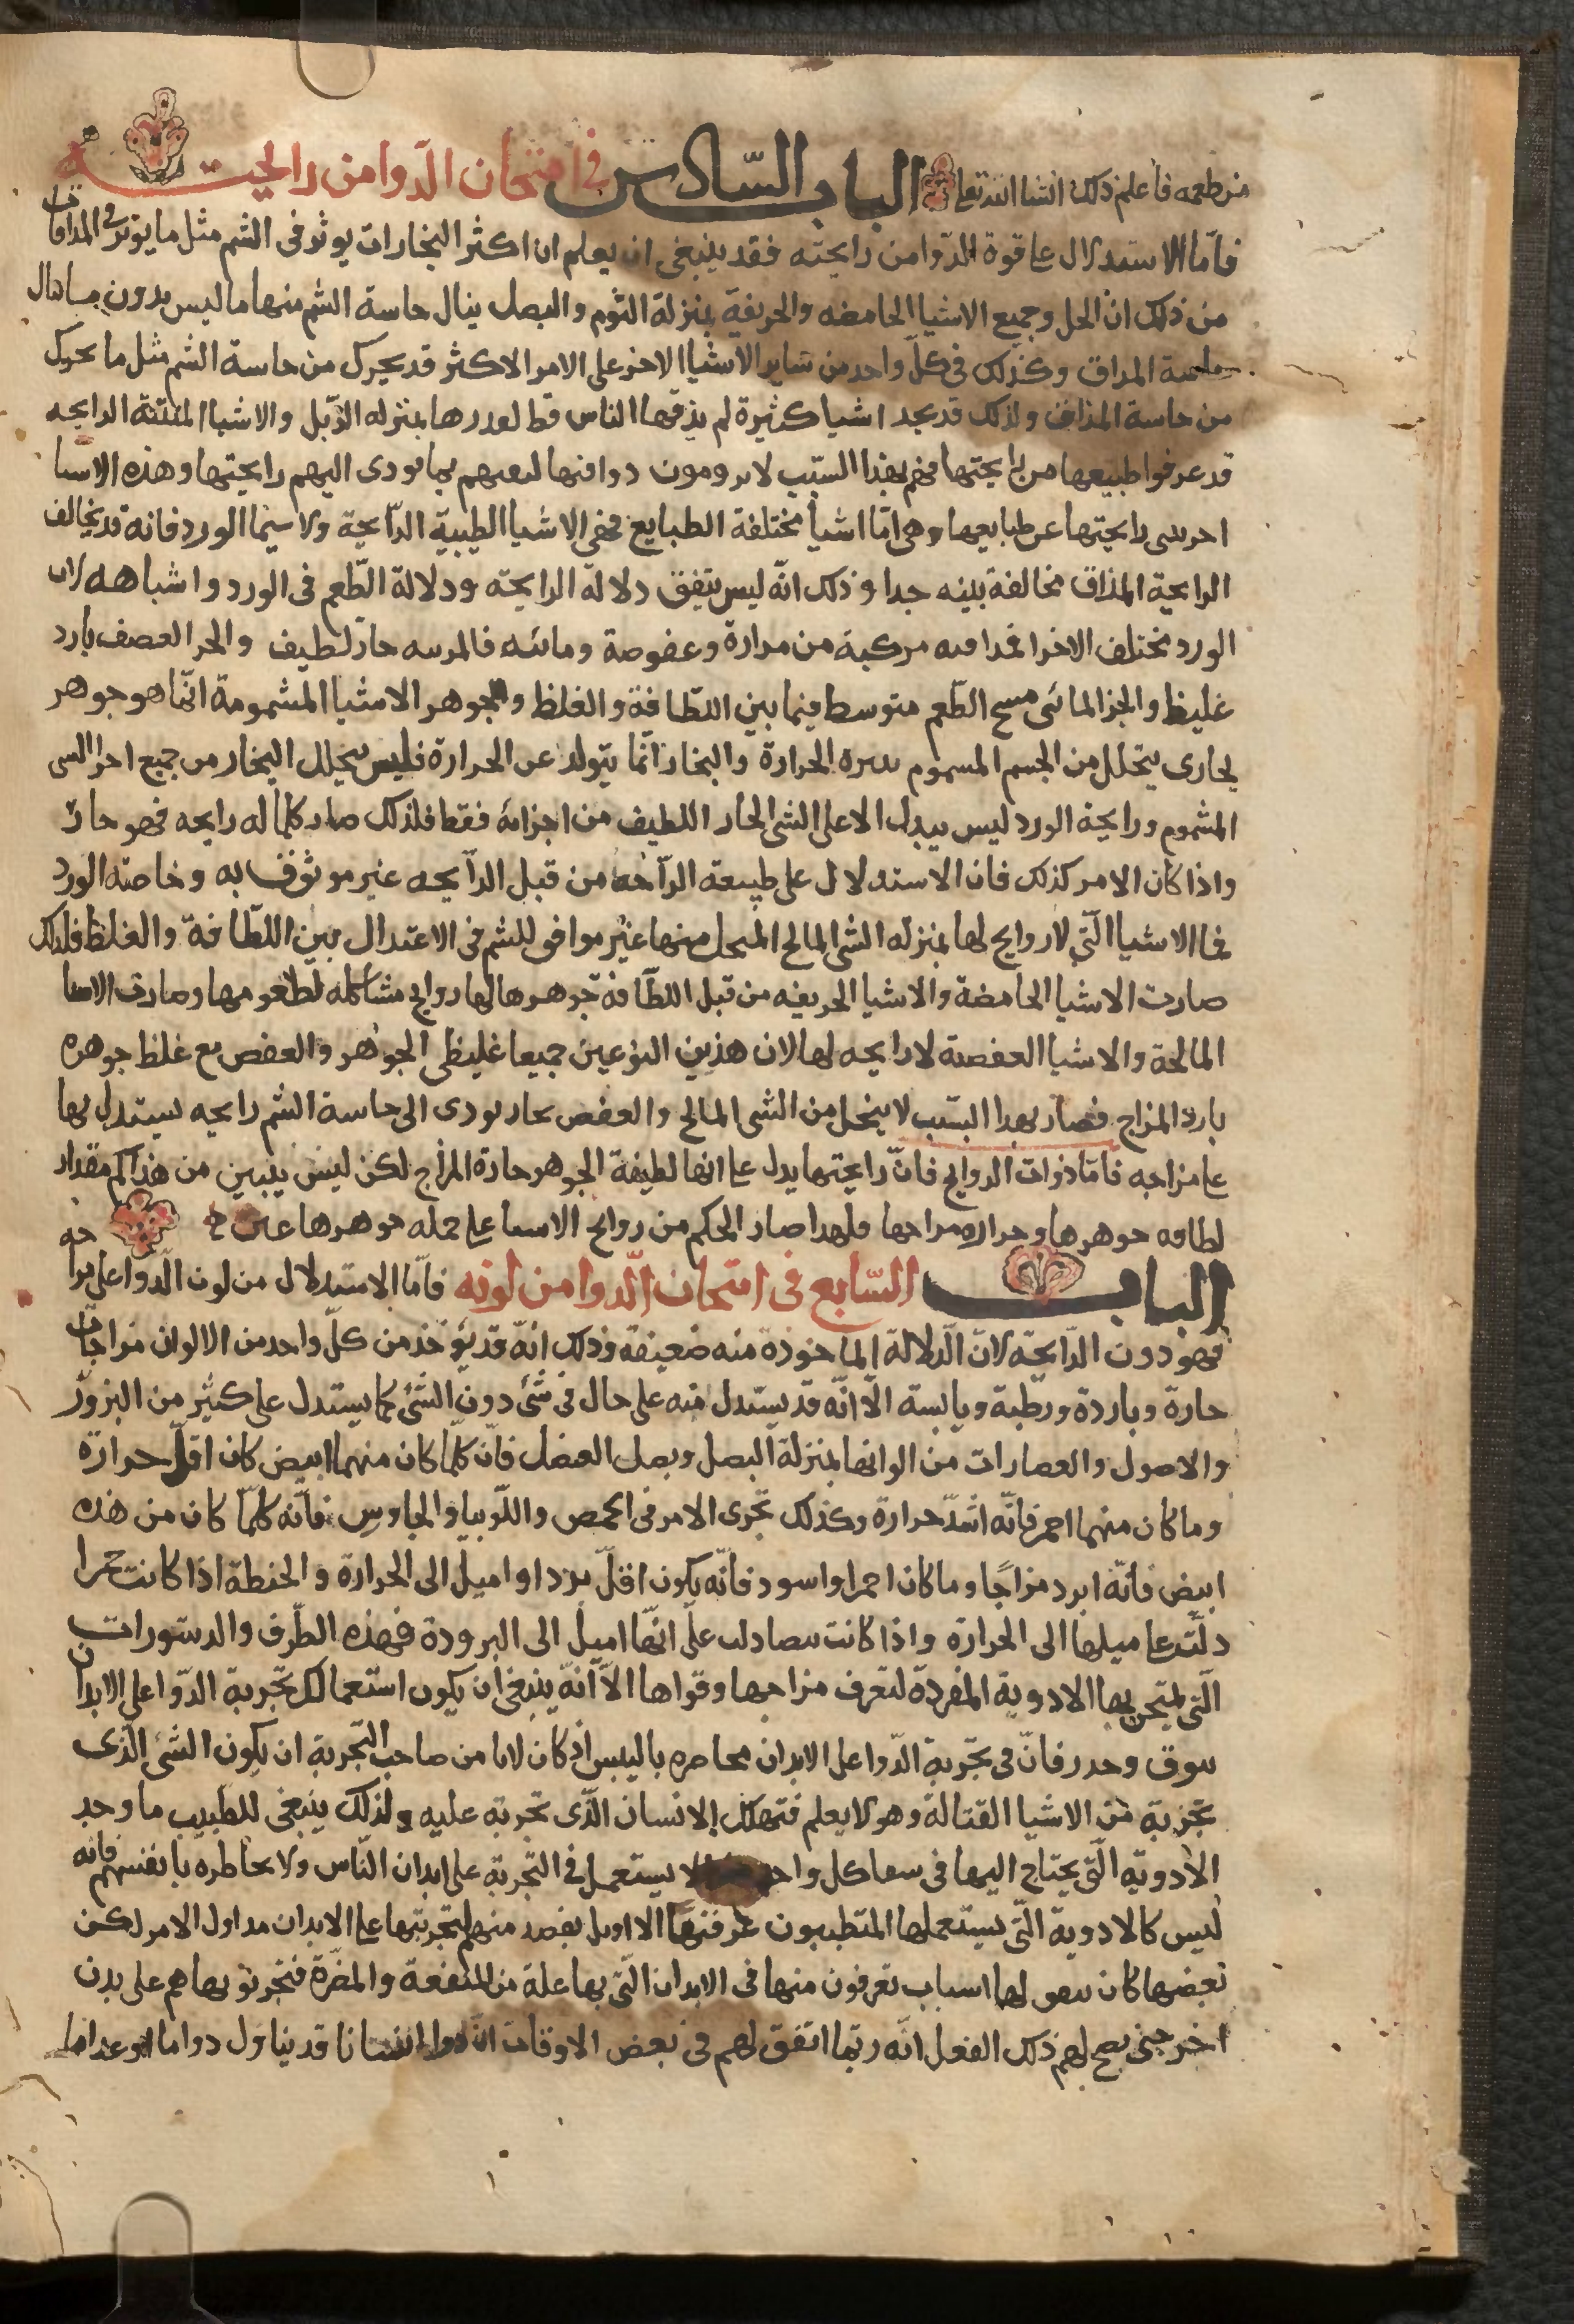 من طعمه فاعلم ذلك انشا الله تعا الباب السّادس فى امتحان الدّوا من رايحته
فامّا الاستدلال على قوة الدّوا من رايحته فقد ينبغى ان يعلم ان اكثر البخارات يوثر فى الشم مثل ما يوثر فى المداق
من ذلك ان الخل وجميع الاشيا الحامضه والحريفة بمنزلة الثوم والبصل ينال حاسة الشم منها ما ليس بدون ما ينال
حاسة المداق وكذلك فى كلّ واحد من ساير الاشيا الاخر على الامر الاكثر قد يحرك من حاسة الشم مثل ما يحرك
من حاسة المذاق ولذلك قد يجد اشيا كثيرة لم يذقها الناس قط لقدرها بمنزله الزّبل والاشيا المنتنة الرايحه
قد عرفوا طبيعها من رايحتها فهم بهذا السّبب لا يرومون دواقنها لثقتهم بما يودى اليهم رايحتها وهذه الاشيا
احرىى رايحتها عن طبايعها وهى امّا اشيا مختلفة الطبايع فهى الاشيا الطيبية الرّايحة ولا سيما الورد فانه قد يخالف
الرايحية المذاق مخالفة بينه جدا وذلك انّه ليس يتفق دلالة الرايحته ودلالة الطّعم فى الورد واشباهه لان
الورد مختلف الاجزا فمداقته مركبة من مرارة وعفوصة ومائيه فالمريه حارّ لطيف والجر العصف بارد
غليظ والجز المائى مسخ الطّعم متوسط فيما بين اللّطافة والغلظ والجوهر الاشيا المشمومة انّما هو جوهر
بخارى يتحلل من الجسم المسموم بسره الحرارة والبخار انّما يتولد عن الحرارة فليس يتحلل البخار من جميع اجزا الشى
المشموم ورايحة الورد ليس يبدل الا على الشى الحار اللطيف من اجزائه فقط فلذلك صار كلما له رايحه فهو حارّ
واذا كان الامر كذلك فان الاستدلال على طبيعة الرّايحه من قبل الرّايحه غير موثوق به وخاصته الورد
فاما الاشيا الّتى لا روايح لها بمنزله الشى المالح المنحل منها غير موافق للشم فى الاعتدال بين اللّطافة والغلظ فلذلك
صارت الاشيا الحامضة والاشيا الحريفه من قبل اللّطافة جوهرها لها روايح مشاكله لطعومها وصارت الاشيا
المالحة والاشيا العفصة لا رايحه لها لان هذين النوعين جميعا غليظى الجوهر والعفص مع غلظ جوهره
بارد المزاج فصار بهدا السّبب لا ينحل من الشى المالح والعفص بخار يودى الى حاسة الشم رايحه يستدل بها
على مزاجه فامّا ذوات الروايح فانّ رايحتها يدل على انها لطيفة الجوهر حارة المزاج لكن ليس يتبين من هذا كم مقدار
لطافه جوهرها وحراره مزاجها فلهدا صار الحكم من روايح الاشيا على جمله جوهرها غير
الباب السّابع فى امتحان الدّوا من لونه فامّا الاستدلال من لون الدّوا على مزاجه
فهو دون الرّايحته لان الدّلالة الماخوذة منه ضعيفة وذلك انّه قد يؤخذ من كلّ واحد من الالوان مزاجات
حارة وباردة ورطبة ويابسة الّا انّه قد يستدل منه على حال فى شئ دون الشّئ كما يستدل على كثير من البزور
والاصول والعصارات من الوانها بمنزلة البصل وبصل العنصل فانّ كلّما كان منهما ابيض كان اقلّ حرارة
وما كان منهما احمر فانّه اشدّ حرارة وكذلك تجرى الامر فى الحمص واللّوبيا والجاوس فانّه كلّما كان من هذه
ابيض فانّه ابرد مزاجًا وما كان احمر او اسود فانّه يكون اقلّ بردا او اميل الى الحرارة والحنطة اذا كانت حمرا
دلّت على ميلها الى الحرارة واذا كانت بيضا دلت على انّها اميل الى البرودة فهذه الطّرق والدستورات
الّتى يمتحن بها الادوية المفردة لتعرف مزاجها وقواها الّا انّه ينبغى ان يكون استعمالك تجربة الدّوا على الابدان
بتوق وحدر فانّ فى تجربة الدّوا على الابدان مخاطره باليبس اذ كان لا يامن صاحب التّجربة ان يكون الشئ الّذى
تجربة من الاشيا القتالة وهو لا يعلم فتهلك الانسان الّذى تجربة عليه ولذلك ينبغى للطبيب ما وجد
الادوية الّتى يحتاج اليها فى سفا كل واحد الا يستعمل فى التّجربة على ابدان النّاس ولا يخاطره بانفسهم فانه
ليس كالادوية الّتى يستعملها المتطببون عرفتها الاوايل بقصد منهم لتجربتها على الابدان مداول الامر لكن
بعضها كان يتفق لها اسباب تعرفون منها فى الابدان الّتى بها علة من المنفعة والمضّرة فتجربو بها هم على بدن
اخر حتى يصح لهم ذلك الفعل انّه ربّما اتفق لهم فى بعض الاوقات انسانا قد يناول دواما او غداما